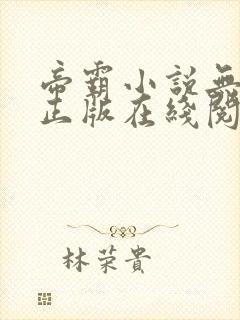 帝霸小説無
正版在綫閱
林荣貴